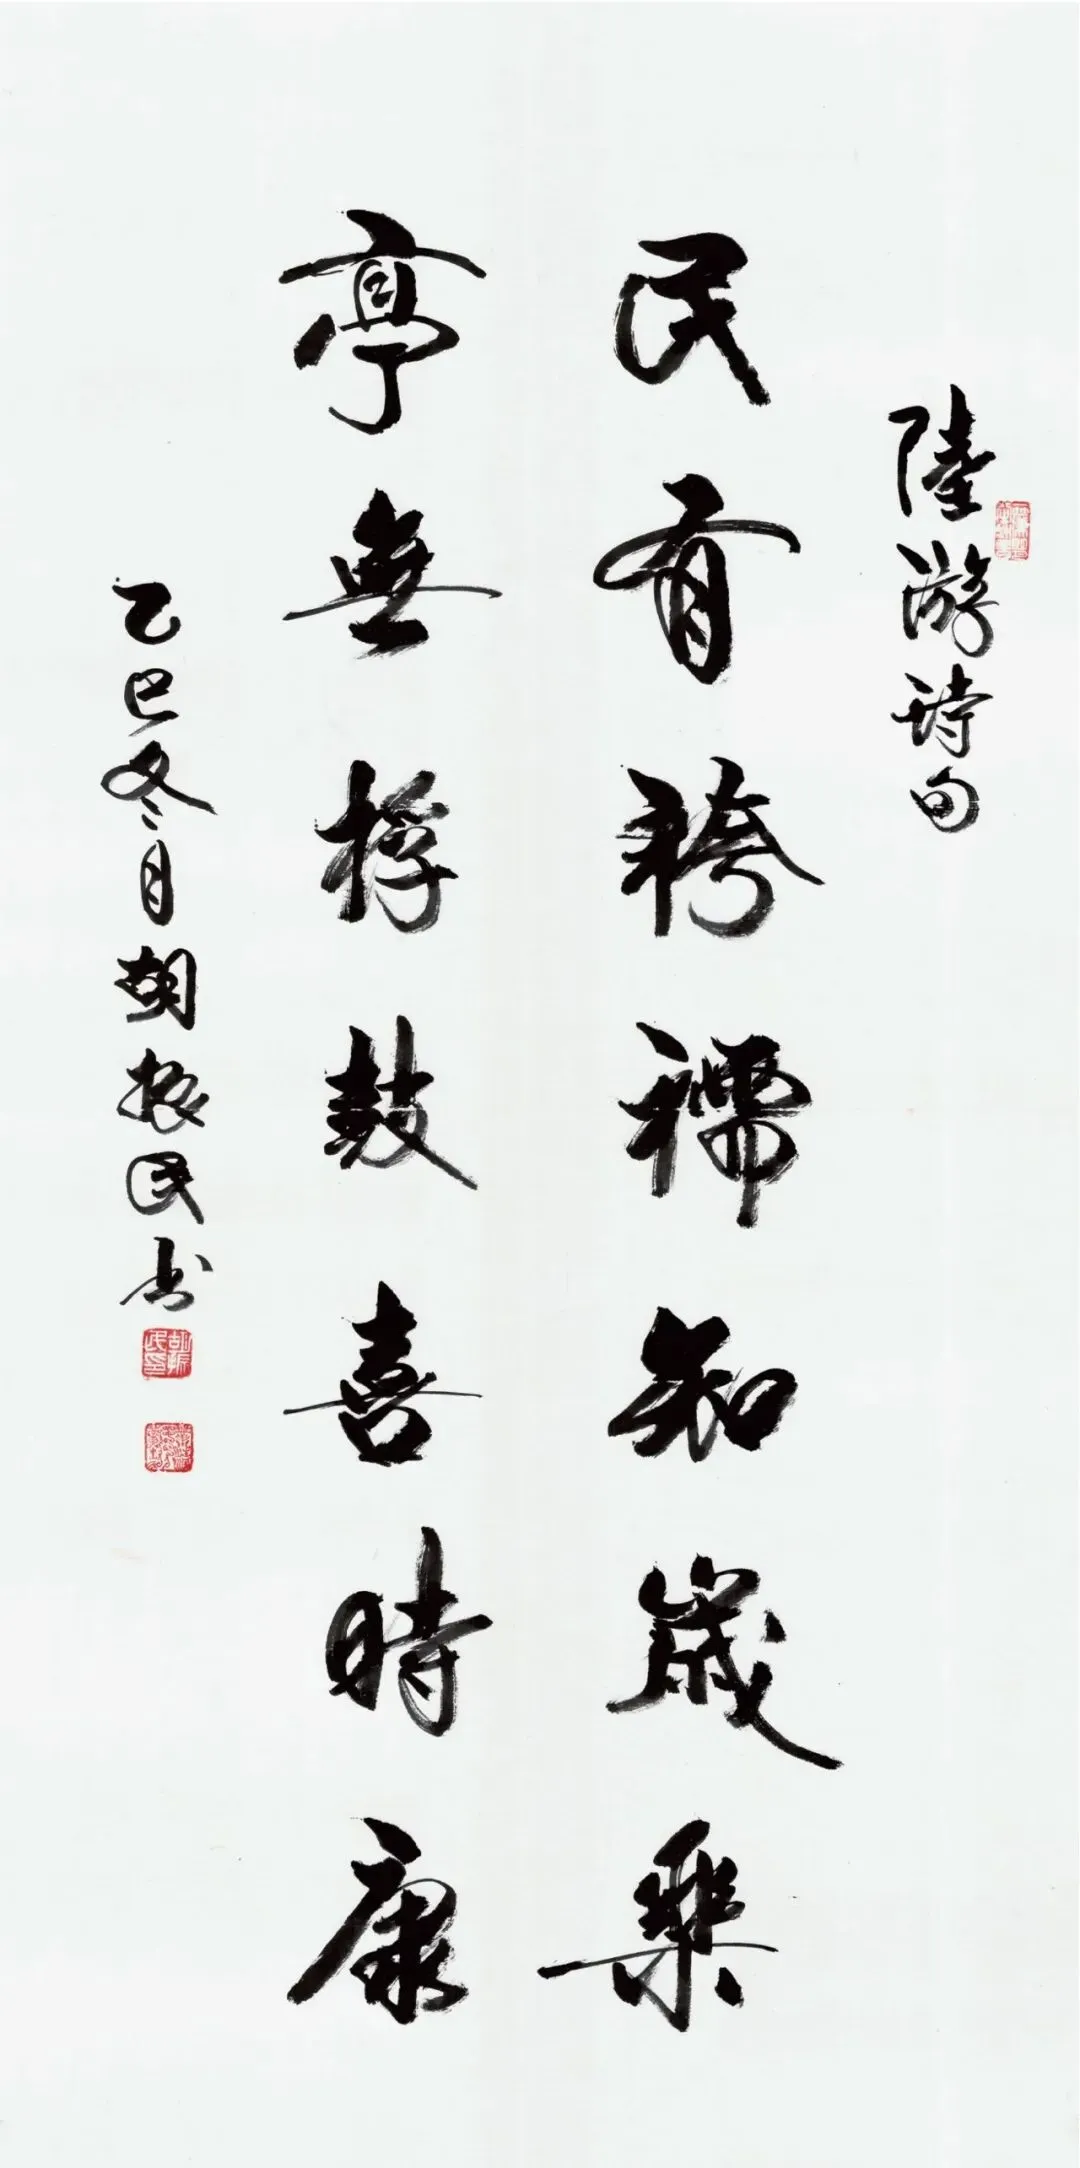 陸游詩句
民有袴襦知歲樂
亭無桴鼓喜時康
乙巳冬月胡振民书